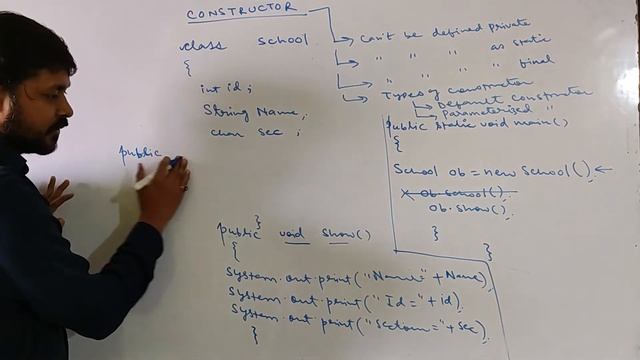 CONSTRUCTOR
class school
{
int id ;
String Name,
char sec ;
public
}
public void show()
{
System.out.print("Name" + Name),
System.out.print("Id =" + id).
System.out.print("Section=" + Sec).
}
Can't be defined private
" " " as static
" " " " final
Types of constructor
Default constructor
Parameterized "
public static void main()
{
School ob = new School() ; ←
ob.school() ;
ob.show() ;
}
}